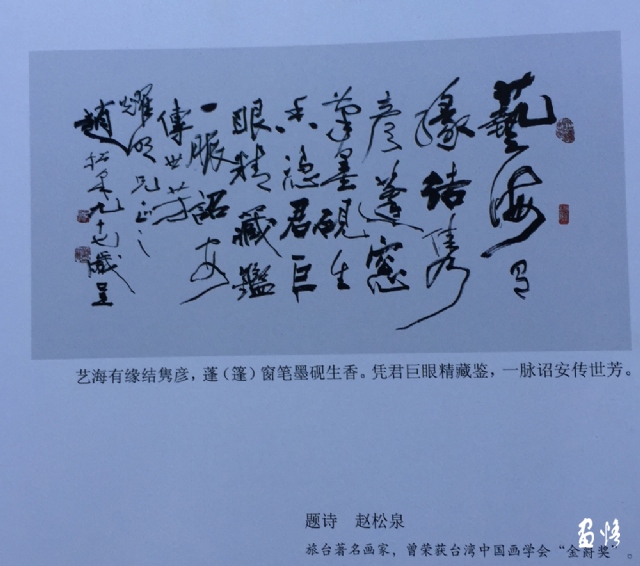 藝海有
緣結雋
彥蓬窓
筆墨硯生
香憑君巨
眼精藏鑑
一脈詔安
傳世芳
耀明兄正之
趙松泉九十七歲呈
艺海有缘结隽彦，蓬（篷）窗笔墨砚生香。凭君巨眼精藏鉴，一脉诏安传世芳。
题诗　赵松泉
旅台著名画家，曾荣获台湾中国画学会“金爵奖”。